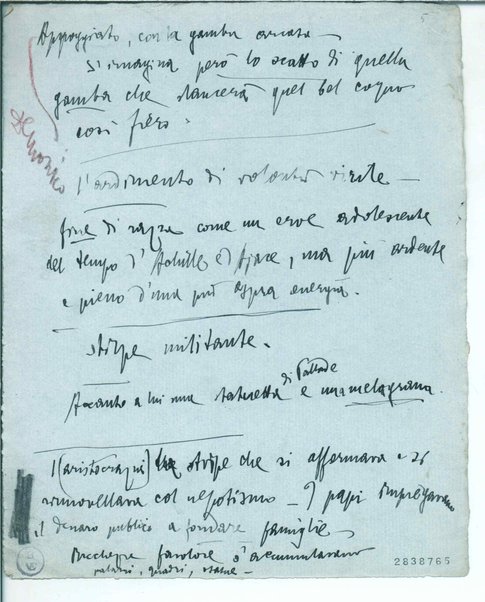 5
Appoggiato, con la gamba arcata –
Si immagina però lo scatto di quella
gamba che slancerà quel bel corpo
così fiero.
l'ardimento di volontà virile –
fine di razza come un eroe adolescente
del tempo d'Achille e d'Ajace, ma più ardente
e pieno d'una più aspra energia.
stirpe militante.
Accanto a lui una statuetta di Pallade e una melagrana.
l(aristocrazia) stirpe che si affermava e si
rinnovellava col nepotismo – I papi impiegavano
il denaro pubblico a fondare famiglie –
Ricchezze favolose s'accumulavano
palazzi, quadri, statue –
2838765